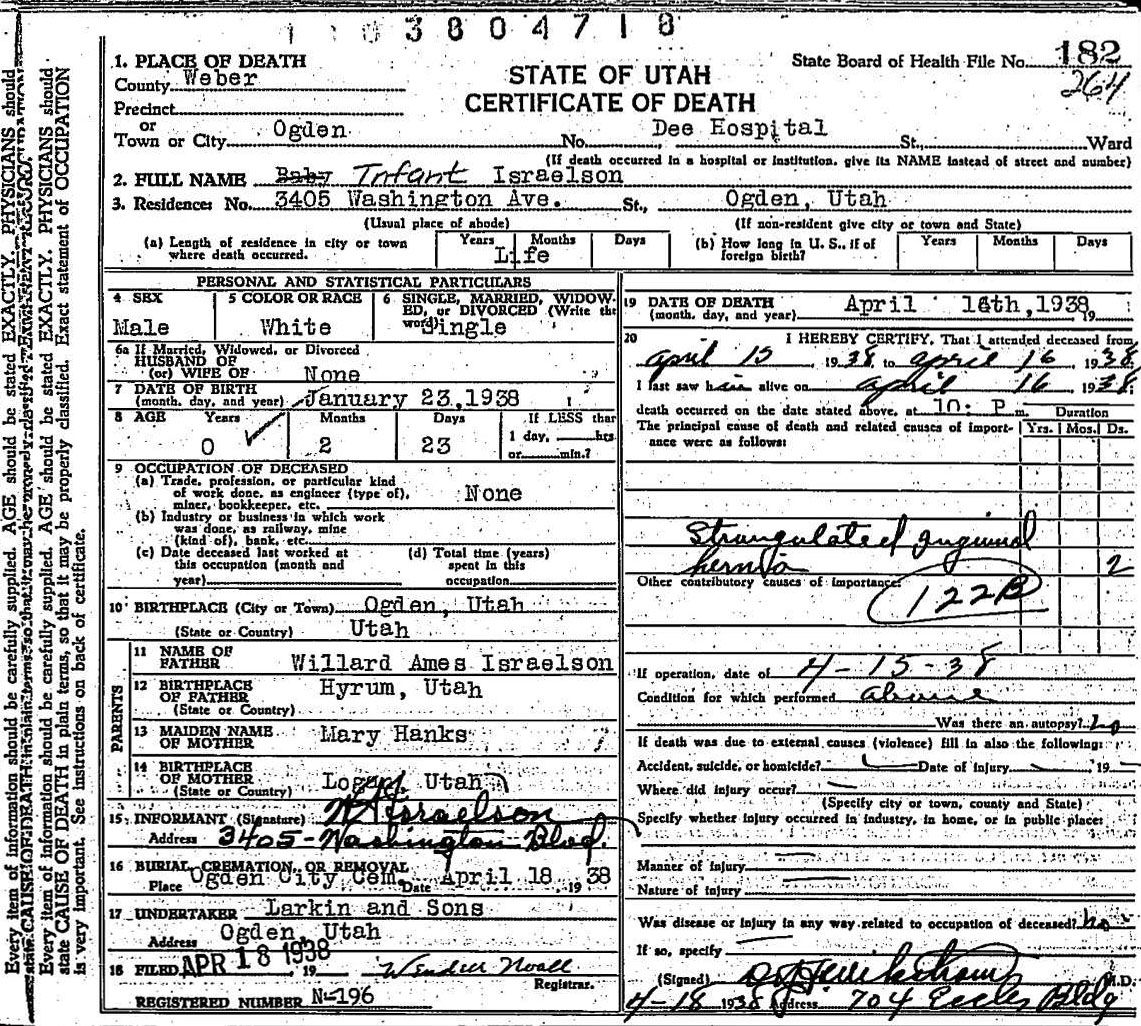 1 03804718
1. PLACE OF DEATH
County Weber
Precinct
or
Town or City Ogden No. Dee Hospital St., Ward
STATE OF UTAH
CERTIFICATE OF DEATH
State Board of Health File No. 182
264
(If death occurred in a hospital or institution, give its NAME instead of street and number)
2. FULL NAME Baby Infant Israelson
3. Residences No. 3405 Washington Ave. St., Ogden, Utah
(Usual place of abode) (If non-resident give city or town and State)
(a) Length of residence in city or town where death occurred. Years Months Days
Life
(b) How long in U. S., if of foreign birth? Years Months Days
PERSONAL AND STATISTICAL PARTICULARS
4 SEX 5 COLOR OR RACE 6 SINGLE, MARRIED, WIDOWED, or DIVORCED (Write the word)
Male White Single
6a If Married, Widowed, or Divorced
HUSBAND OF
(or) WIFE OF None
7 DATE OF BIRTH
(month, day, and year) January 23,1938
8 AGE Years Months Days If LESS than
0 2 23 1 day, hrs
or min.?
9 OCCUPATION OF DECEASED
(a) Trade, profession, or particular kind
of work done, as engineer (type of),
miner, bookkeeper, etc. None
(b) Industry or business in which work
was done, as railway, mine
(kind of), bank, etc.
(c) Date deceased last worked at
this occupation (month and
year)
(d) Total time (years)
spent in this
occupation
10 BIRTHPLACE (City or Town) Ogden, Utah
(State or Country) Utah
PARENTS
11 NAME OF
FATHER Willard Ames Israelson
12 BIRTHPLACE
OF FATHER Hyrum, Utah
(State or Country)
13 MAIDEN NAME
OF MOTHER Mary Hanks
14 BIRTHPLACE
OF MOTHER
(State or Country) Logan, Utah
15 INFORMANT (Signature) W A Israelson
Address 3405-Washington Blvd.
16 BURIAL, CREMATION, OR REMOVAL
Place Ogden City Cem. Date April 18 19 38
17 UNDERTAKER Larkin and Sons
Address Ogden, Utah
18 FILED APR 18 1938 19 Wendell Noall
Registrar.
REGISTERED NUMBER N-196
19 DATE OF DEATH
(month, day, and year) April 16th,1938 19
20 I HEREBY CERTIFY, That I attended deceased from
april 15, 1938 to april 16, 1938
I last saw him alive on april 16 1938
death occurred on the date stated above, at 10: P m. Duration
The principal cause of death and related causes of importance were as follows: Yrs. Mos. Ds.
Strangulated Inguinal
hernia 2
Other contributory causes of importance:
122B
If operation, date of 4-15-38
Condition for which performed above
Was there an autopsy? no
If death was due to external causes (violence) fill in also the following:
Accident, suicide, or homicide? Date of injury 19
Where did injury occur?
(Specify city or town, county and State)
Specify whether injury occurred in industry, in home, or in public place:
Manner of injury
Nature of injury
Was disease or injury in any way related to occupation of deceased? no
If so, specify
(Signed) M.D.
4-18 1938 Address 704 Eccles Bldg
Every item of information should be carefully supplied. AGE should be stated EXACTLY. PHYSICIANS should
Every item of information should be carefully supplied. AGE should be stated EXACTLY. PHYSICIANS should
state CAUSE OF DEATH in plain terms, so that it may be properly classified. Exact statement of OCCUPATION
is very important. See instructions on back of certificate.